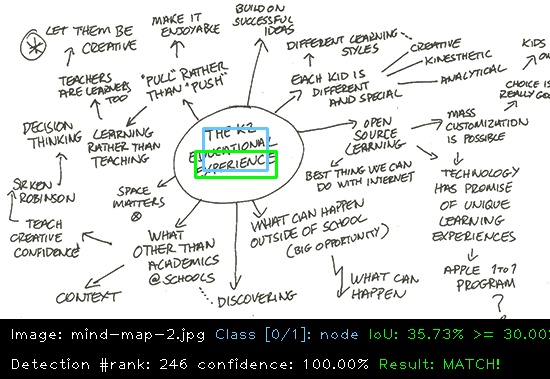 LET THEM BE
CREATIVE
MAKE IT
ENJOYABLE
BUILD ON
SUCCESSFUL
IDEAS
DIFFERENT LEARNING
STYLES
CREATIVE
KINESTHETIC
ANALYTICAL
KIDS
CHOICE IS
TEACHERS
ARE LEARNERS
TOO
"PULL" RATHER
THAN "PUSH"
EACH KID IS
DIFFERENT
AND SPECIAL
DECISION
THINKING
LEARNING
RATHER THAN
TEACHING
THE K2
EDUCATIONAL
EXPERIENCE
OPEN
SOURCE
LEARNING
MASS
CUSTOMIZATION
IS POSSIBLE
SIR KEN
ROBINSON
SPACE
MATTERS
BEST THING WE CAN
DO WITH INTERNET
TECHNOLOGY
HAS PROMISE
OF UNIQUE
LEARNING
EXPERIENCES
TEACH
CREATIVE
CONFIDENCE
WHAT
OTHER THAN
ACADEMICS
@ SCHOOLS
WHAT CAN HAPPEN
OUTSIDE OF SCHOOL
(BIG OPPORTUNITY)
CONTEXT
DISCOVERING
WHAT CAN
HAPPEN
APPLE 1 TO 1
PROGRAM
?
Image: mind-map-2.jpg Class [0/1]: node IoU: 35.73% >= 30.00%
Detection #rank: 246 confidence: 100.00% Result: MATCH!